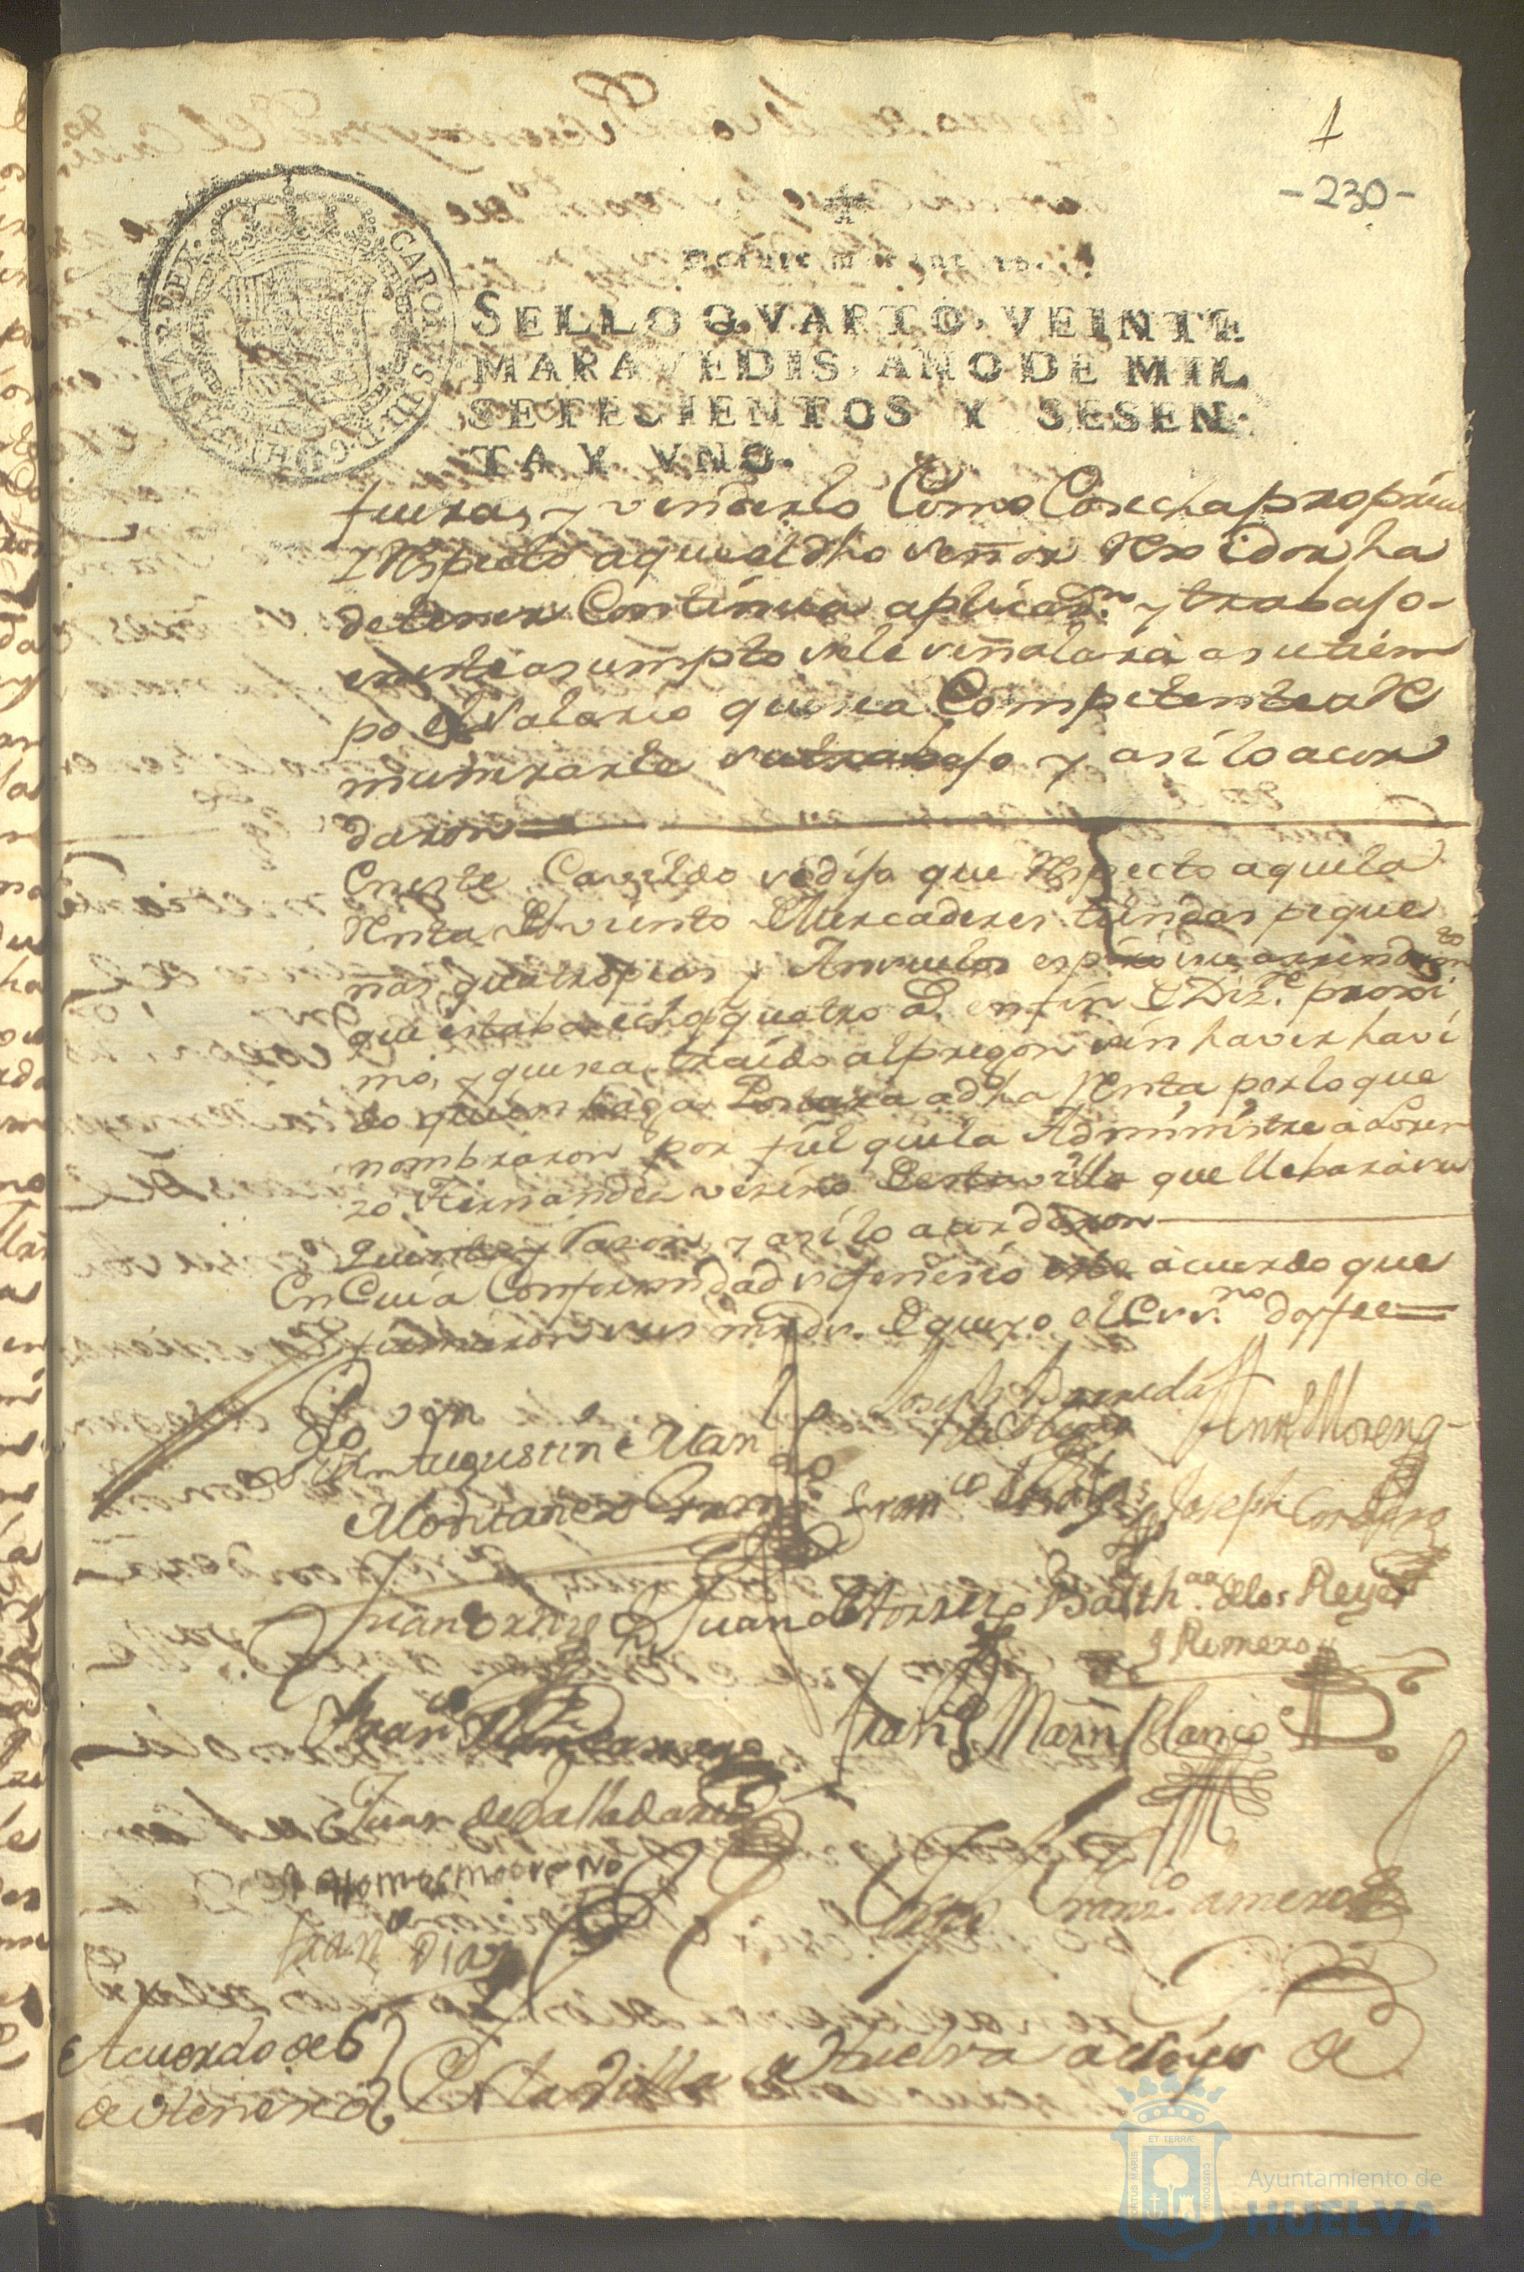 1
-230-
CAROLUS III D.G. HISPANIAR. REX
SELLO QVARTO, VEINTE
MARAVEDIS, AÑO DE MIL
SETECIENTOS Y SESEN-
TA Y VNO.
fuera, y venderlo Como Cosecha propria
Respecto aque el dho señor Rexidor ha
de tener Continua aplicazn. y trabajo
eneste asumpto sele señalará a su tiem
po el Salario que sea Competente a Re
munerarle su trabajo y asi lo acor
daron
Eneste Cavildo se dijo que Respecto aque la
Renta del viento Mercaderes tiendas peque
ñas quatropeas y Anzuelos espiró su arrendam.to
que estaba echo quatro a.s en fin de Diz.e proxi
mo, y que sea traido al pregon sin haver havi
do quien haga Postura a dha Renta por lo que
nombraron por fiel que la Administre a Loren
zo Hernandez vezino desta villa que llebará su
quenta y Razon, y asi lo acordaron
En Cuia Conformidad se fenecio este acuerdo que
firmaron sus mrds. de que yo el Ess.no doy fee
Agustin
Montanero
Joseph
Ant.o Moreno
Fran.co
Joseph Cordero
Juan Ortiz
Juan de Torres
Balth.ar de los Reyes
y Romero
Fran.co
Fran.co Marin Blanco
Juan de Valladares
Thomas Moreno
Fran.co Diaz
Franz.co Romero
Acuerdo de 6
de Henero
En la Villa de Huelva a seis de
Ayuntamiento de
HUELVA